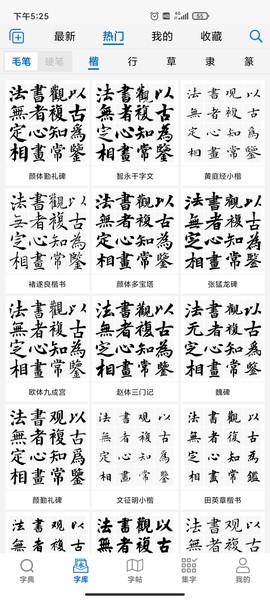 下午5:25
4G
55
最新
热门
我的
收藏
毛笔
硬笔
楷
行
草
隶
篆
法書觀以
無者複古
定心知為
相畫常鑒
颜体勤礼碑
法書觀以
無者複古
定心知為
相畫常鑒
智永千字文
法書观以
無者複古
定心知為
相畫常鑒
黄庭经小楷
法書觀以
無者複古
定心知為
相畫常鑒
褚遂良楷书
法書觀以
無者複古
定心知為
相畫常鑒
颜体多宝塔
法書觀以
無者複古
定心知為
相畫常鑒
张猛龙碑
法書觀以
無者複古
定心知為
相畫常鑒
欧体九成宫
法書觀以
無者複古
定心知為
相畫常鑒
赵体三门记
法書觀以
无者複古
定心知為
相畫常鑒
魏碑
法書观以
無者複古
定心知為
相畫常鑒
颜勤礼碑
法書观以
無者複古
定心知為
相畫常鑒
文征明小楷
法書觀以
無者復古
定心知為
相畫常鑑
田英章楷书
法書觀以
無者複古
法書觀以
無者複古
法書觀以
無者複古
字典
字库
字帖
集字
我的